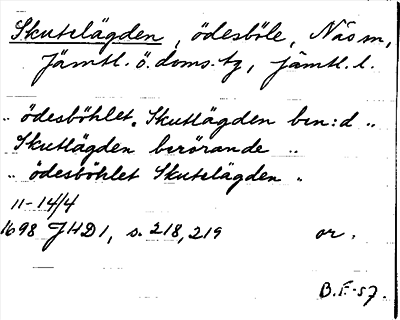 Skutslägden, ödesböle, Näs sn,
Jämtl. ö. doms. tg, Jämtl. l.
„ ödesböhlet. Skutlägden ben:d „
Skutlägden berörande „
„ ödesböhlet Skutslägden „
11-14/4
1698 JHD1, s. 218, 219 or.
B.F-57.